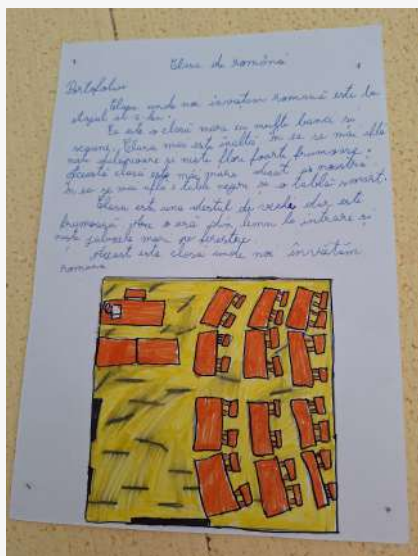 Clasa de română
Portofoliu
Clasa unde noi învățăm română este la
etajul al 2-lea.
Ea este o clasă mare cu multe bănci și
scaune. Clasa mea este înaltă, în ea se mai află
niște flori foarte frumoase.
Această clasă este mai mare decât a noastră.
În ea se mai află o tablă neagră și o tablă smart.
Clasa este una destul de veche dar este
frumoasă. Are o ușă din lemn la intrare și
niște jaluzele mari pe ferestre.
Aceasta este clasa unde noi învățăm
romana